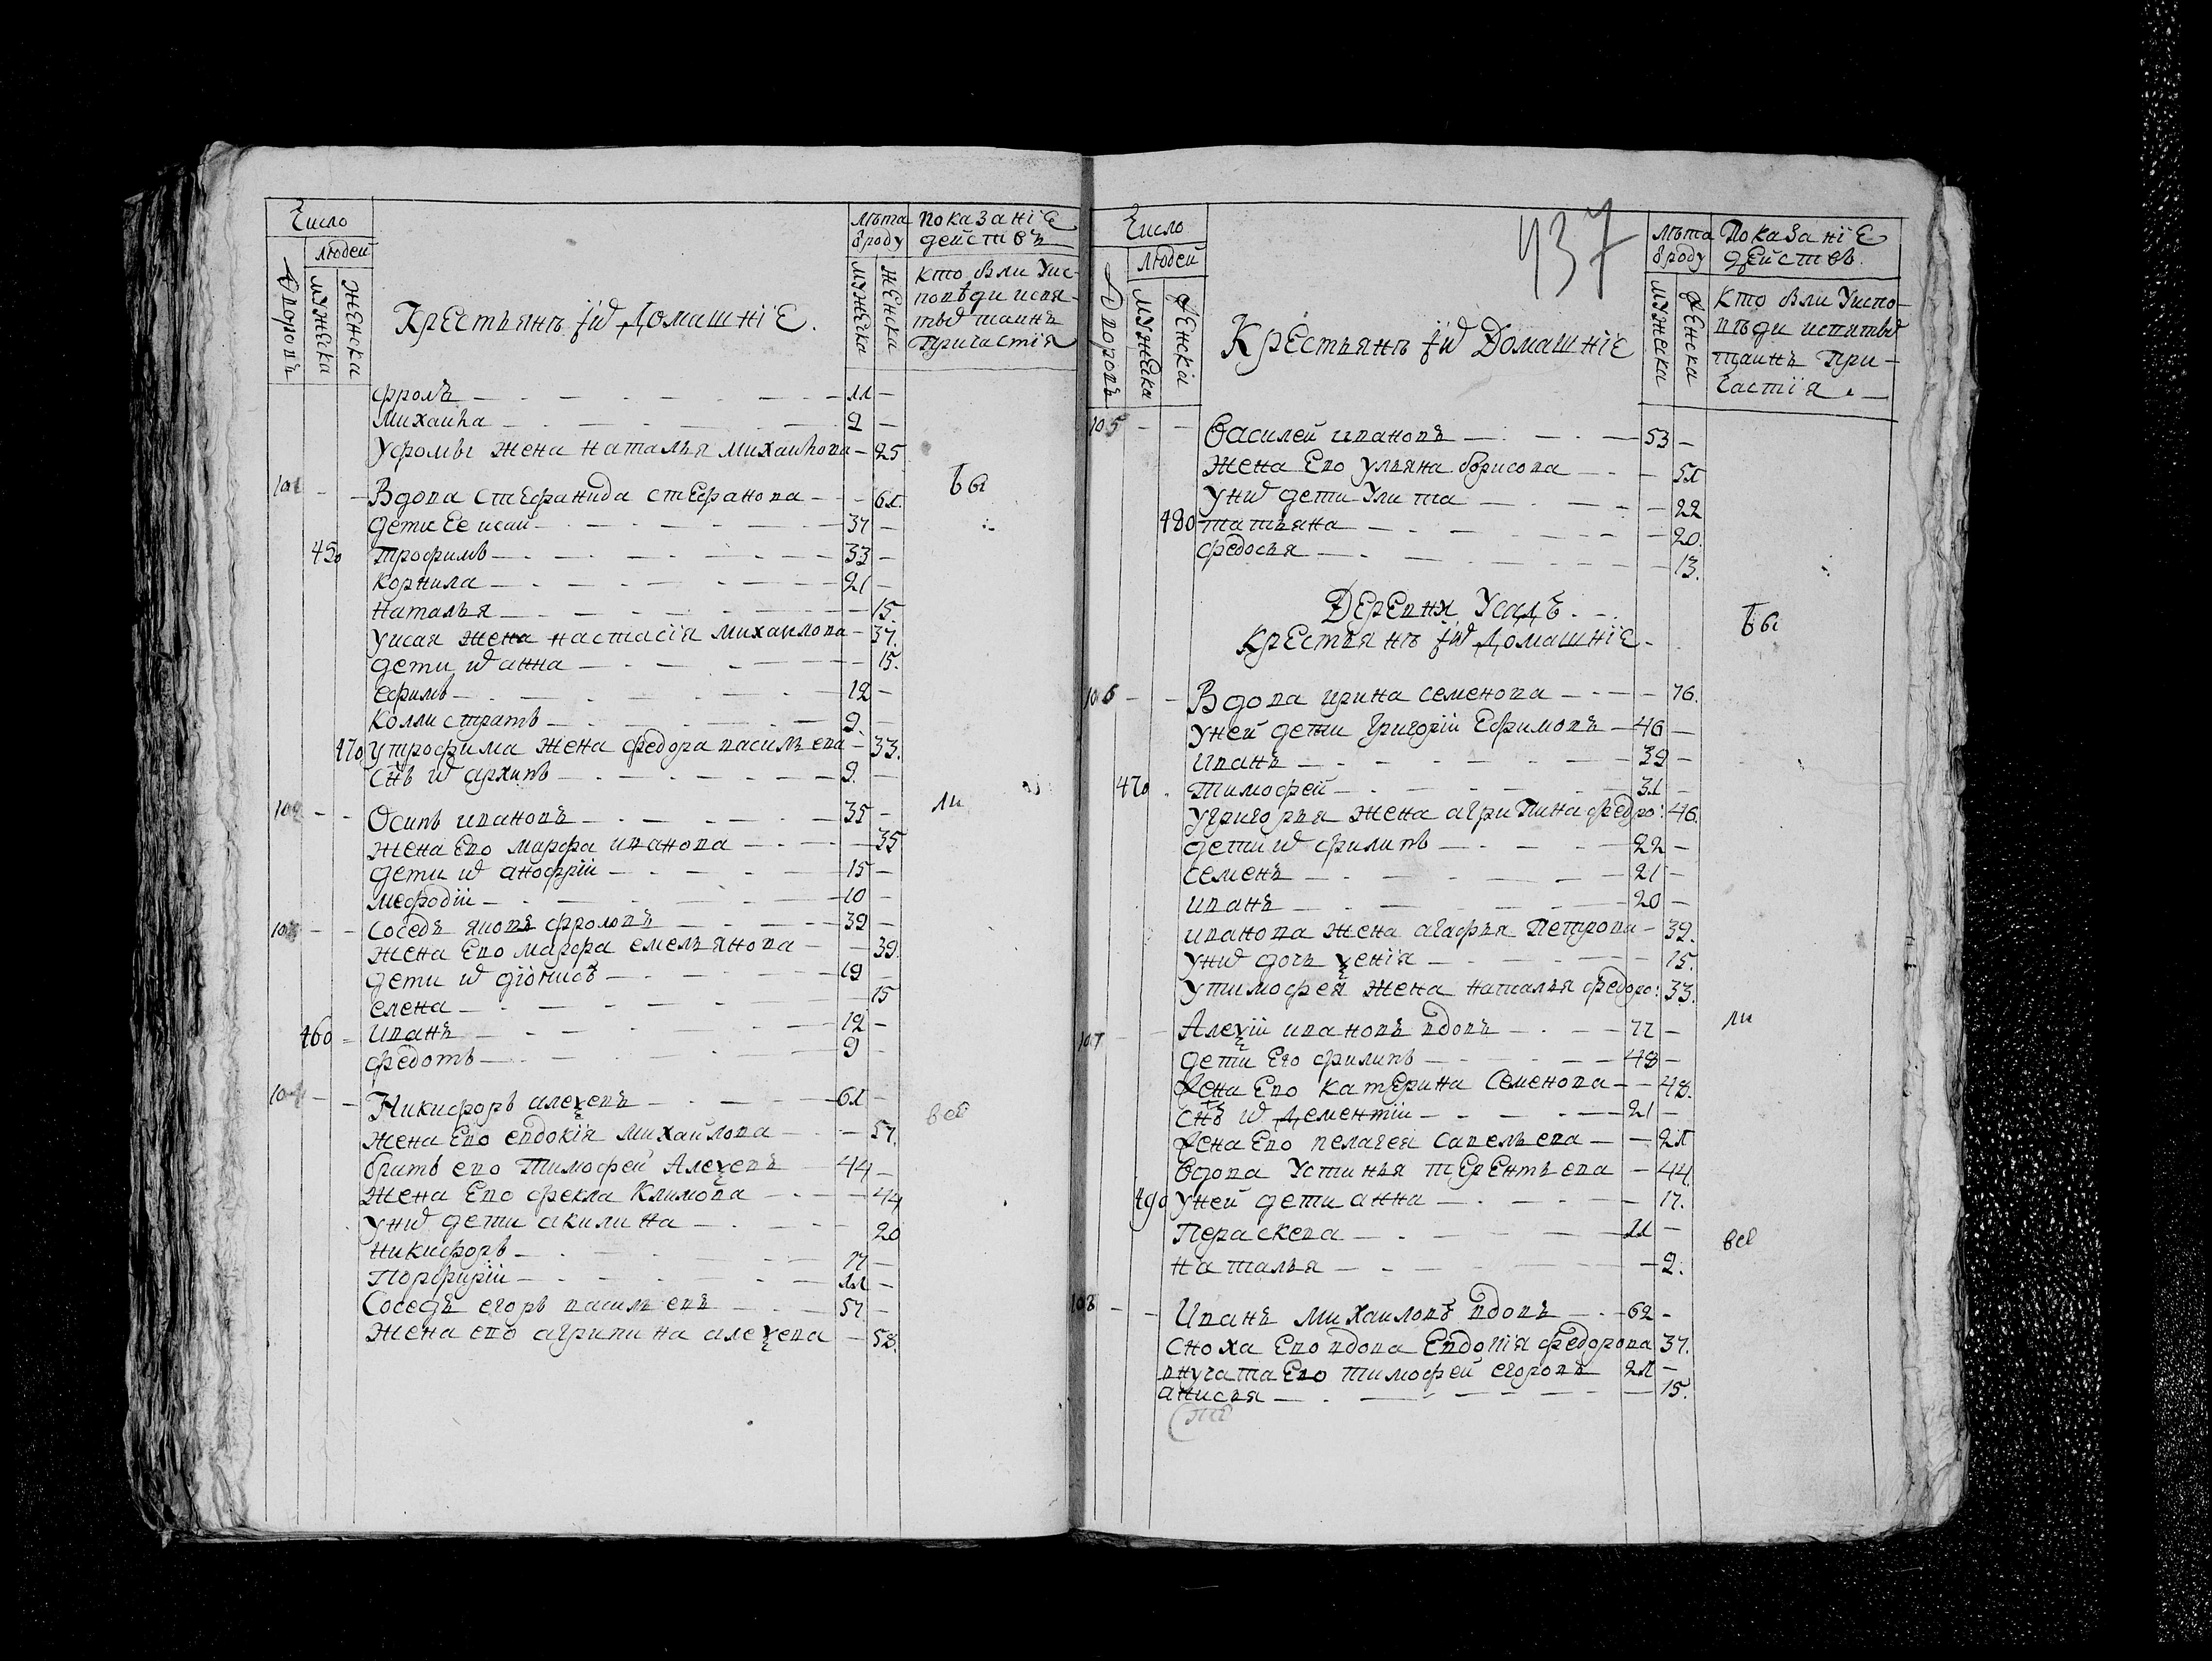 Число
людей
дворовъ
мужеска
женска
Крестьянъ їихъ домашніе.
лѣта
ѿроду
мужеска
женска
показаніе
действъ
кто были уис-
поведи исвя-
тыхъ таинъ
причастія
фролъ — 11 —
михаила — 9 —
уфролы жена наталья михаилова — 25
101 — — Вдова стефанида стефанова — 61.
дети Ее исай — 37 —
450 трофимъ — 33 —
корнила — 21 —
наталья — 15.
уисая жена настасія михаилова — 37.
дети их анна — 15.
ефимъ — 12 —
коллистратъ — 9. —
470 утрофима жена федора васильева — 33.
снъ их архипъ — 9. —
102 — — Осипъ ивановъ — 35 —
жена Ево марфа иванова — 35
дети их анофрій — 15 —
мефодій — 10 —
103 — — соседъ яковъ фроловъ — 39 —
жена Ево марфа емельянова — 39.
дети их діонисъ — 19
елена — 15
460 — иванъ — 12 —
федотъ — 9 —
104 — — Никифоръ алеѯевъ — 61 —
жена Ево евдокія михаилова — 57.
братъ ево тимофей Алеѯевъ 44 —
жена Ево фекла климова — 44
уних дети акилина — 20
никифоръ — 17 —
порфирій — 11 —
Соседъ егоръ васильевъ — 57 —
жена ево агрипина алеѯева — 58.
бы
ли
всѣ
437
Число
людей
дворовъ
мужеска
женскіи
Крестьянъ їихъ Домашніе
лѣта
ѿроду
мужеска
женска
Показаніе
действъ.
Кто были уиспо-
вѣди исвятых
таинъ При-
частія. —
105 — — Василей ивановъ — 53 —
жена Ево ульяна борисова — 51
уних дети улита — 22
480 татьяна — 20.
федосья — 13.
Деревня Усадъ. —
Крестьянъ їихъ домашніе.
106 — — Вдова ирина семенова — 76.
уней дети григорій Ефимовъ — 46 —
иванъ — 39 —
470 тимофей — 31 —
угригорья жена агрипина федро: 46.
дети их филипъ — 22 —
семенъ — 21 —
иванъ — 20 —
иванова жена агафья Петрова — 39.
уних дочь ѯенія — 15.
утимофея жена наталья федоро: 33.
107 — Алеѯій ивановъ вдовъ — 77 —
дети Его филипъ — 48 —
жена Ево катерина Семенова — 48.
снъ их дементій — 21 —
жена Ево пелагея савельева — 21
вдова устинья терентьева — 44
490 уней дети анна — 17.
Пераскева — 11 —
наталья — 9.
108 — — Иванъ михаиловъ вдовъ — 62 —
сноха Ево вдова Евдокія федорова 37.
внучата Ево тимофей егоровъ 21 —
анисья — 15.
бы
ли
всѣ